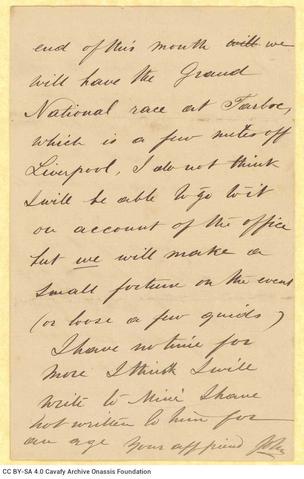 end of this month will we
will have the Grand
National race at Tarboc,
which is a few miles off
Liverpool, I do not think
I will be able to go to it
on account of the office
but we will make a
small fortune on the event
(or loose a few quids)
I have no time for
more I think I will
write to Miné I have
not written to him for
an age Your aff friend John
CC BY-SA 4.0 Cavafy Archive Onassis Foundation